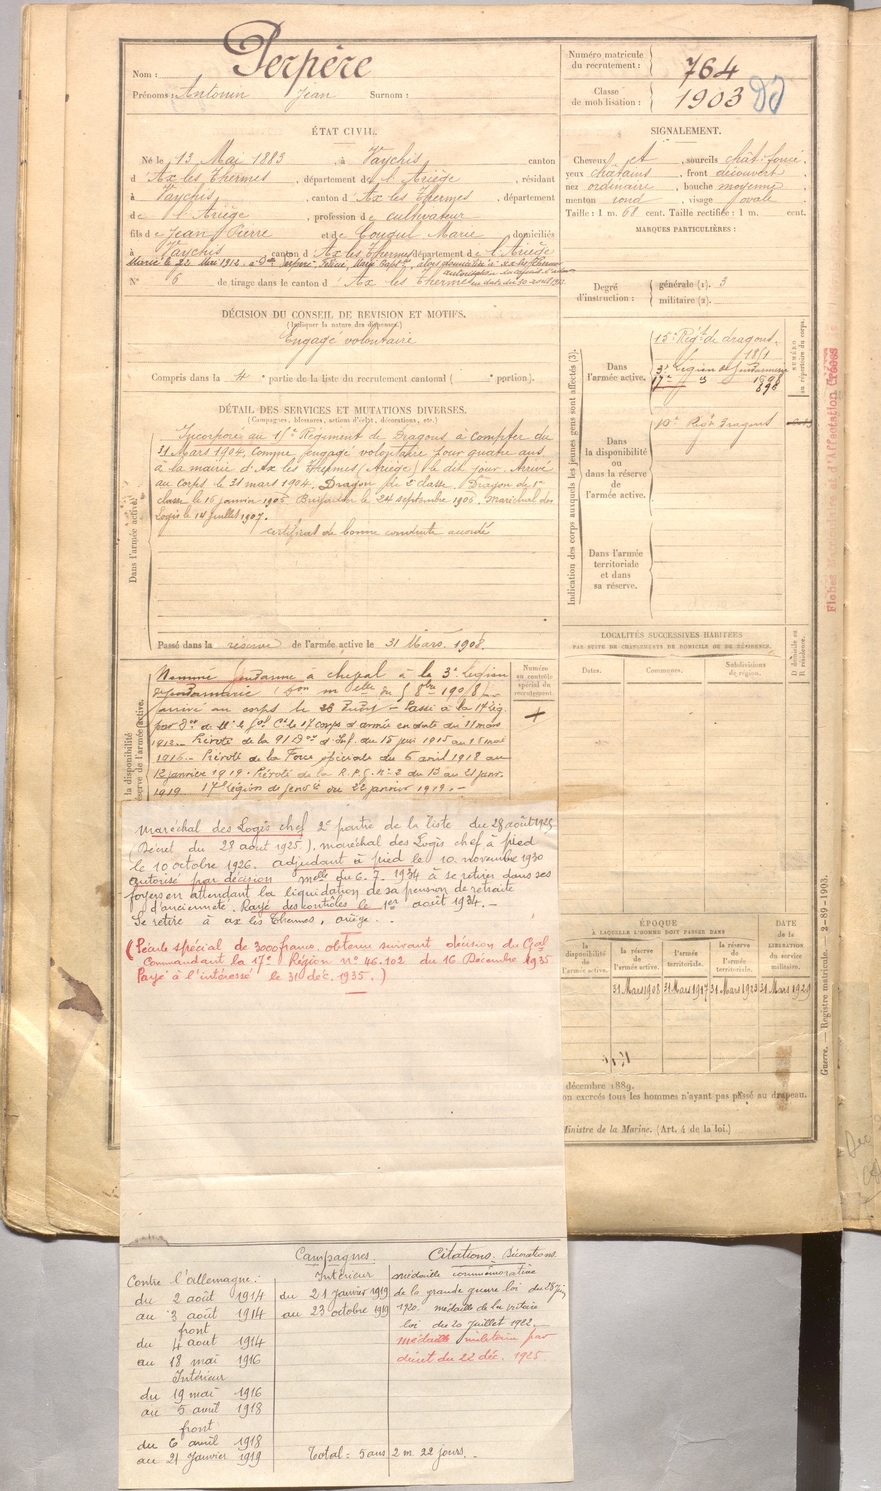 Nom : Perpère
Prénoms : Antonin Jean Surnom :
Numéro matricule du recrutement : 764
Classe de mobilisation : 1903
ÉTAT CIVIL.
Né le 13 Mai 1883, à Vaychis, canton
d'Ax les Thermes, département de l'Ariège, résidant
à Vaychis, canton d'Ax les Thermes, département
de l'Ariège, profession de cultivateur
fils de Jean Pierre et de Couqul Marie, domiciliés
à Vaychis canton d'Ax les Thermes département de l'Ariège
Marié le 22 Mai 1912 à
N° 6 de tirage dans le canton d'Ax les Thermes
SIGNALEMENT.
Cheveux et, sourcils chât. foncé,
yeux chatains, front découvert,
nez ordinaire, bouche moyenne,
menton rond, visage ovale.
Taille : 1 m. 68 cent. Taille rectifiée : 1 m. cent.
MARQUES PARTICULIÈRES :
Degré d'instruction : générale (1). 3
militaire (2).
DÉCISION DU CONSEIL DE REVISION ET MOTIFS.
(Indiquer la nature des dispenses.)
Engagé volontaire
Compris dans la 4e partie de la liste du recrutement cantonal ( e portion).
DÉTAIL DES SERVICES ET MUTATIONS DIVERSES.
(Campagnes, blessures, actions d'éclat, décorations, etc.)
Dans l'armée active.
Incorporé au 15e Régiment de Dragons à compter du
31 Mars 1904, comme engagé volontaire pour quatre ans
à la mairie d'Ax les Thermes (Ariège) le dit jour. Arrivé
au corps le 31 mars 1904. Dragon de 2e classe. Dragon de 1re
classe le 16 janvier 1905. Brigadier le 24 septembre 1905. Maréchal des
Logis le 14 juillet 1907.
certificat de bonne conduite accordé
Passé dans la réserve de l'armée active le 31 Mars 1908.
Indication des corps auxquels les jeunes gens sont affectés (3).
NUMÉRO au répertoire du corps.
Dans l'armée active.
15e Régt de dragons
1851
3e Légion de Gendarmerie
17e
Dans la disponibilité ou dans la réserve de l'armée active.
10e Régt Dragons
Dans l'armée territoriale et dans sa réserve.
Nommé Gendarme à cheval à la 3e Légion
de gendarmerie
arrivé au corps le 28 Passé à la 17e Lég.
par Don de Mr le Gal Ct le 17e corps d'armée en date du 11 mars
1913. Prévôté de la 91 Don d'Inf. du 15 juin 1915 au 18 mai
1916. Prévôté de la Force spéciale du 6 avril 1918 au
12 janvier 1919. Prévôté de la R.P.G. n° 2 du 13 au 21 janv.
1919. 17e Légion de Gendie du 22 janvier 1919.
Numéro au contrôle spécial du recrutement.
+
LOCALITÉS SUCCESSIVES HABITÉES
PAR SUITE DE CHANGEMENTS DE DOMICILE OU DE RÉSIDENCE.
Dates. Communes. Subdivisions de région. D domicile ou R résidence.
Maréchal des Logis chef 2e partie de la liste du 28 août 1925
(Décret du 28 août 1925), maréchal des Logis chef à pied
le 10 octobre 1926. adjudant à pied le 10 novembre 1930
autorisé par décision melle du 6.7.1934 à se retirer dans ses
foyers en attendant la liquidation de sa pension de retraite
d'ancienneté. Rayé des contrôles le 1er août 1934.
Se retire à ax les Thermes, ariège.
(Pécule spécial de 3000 francs, obtenu suivant décision du Gal
Commandant la 17e Région n° 46.102 du 16 Décembre 1935
Payé à l'intéressé le 31 déc. 1935.)
ÉPOQUE
À LAQUELLE L'HOMME DOIT PASSER DANS
la disponibilité de l'armée active. la réserve de l'armée active. l'armée territoriale. la réserve de l'armée territoriale.
DATE de la LIBÉRATION du service militaire.
31 Mars 1908 31 Mars 1917 31 Mars 1923 31 Mars 1929
décembre 1889.
on exercés tous les hommes n'ayant pas passé au drapeau.
Ministre de la Marine. (Art. 4 de la loi.)
Guerre. — Registre matricule. — 2-89-1903.
Campagnes
Contre l'allemagne :
du 2 août 1914
au 3 août 1914
front
du 4 aout 1914
au 18 mai 1916
Intérieur
du 19 mai 1916
au 5 avril 1918
front
du 6 avril 1918
au 21 Janvier 1919
Intérieur
du 21 janvier 1919
au 23 octobre 1919
Total = 5 ans 2 m. 22 jours.
Citations. Décorations.
médaille commémorative
de la grande guerre loi du 28 Jin
1920. médaille de la victoire
loi du 20 Juillet 1922.
médaille militaire par
décret du 22 déc. 1925.